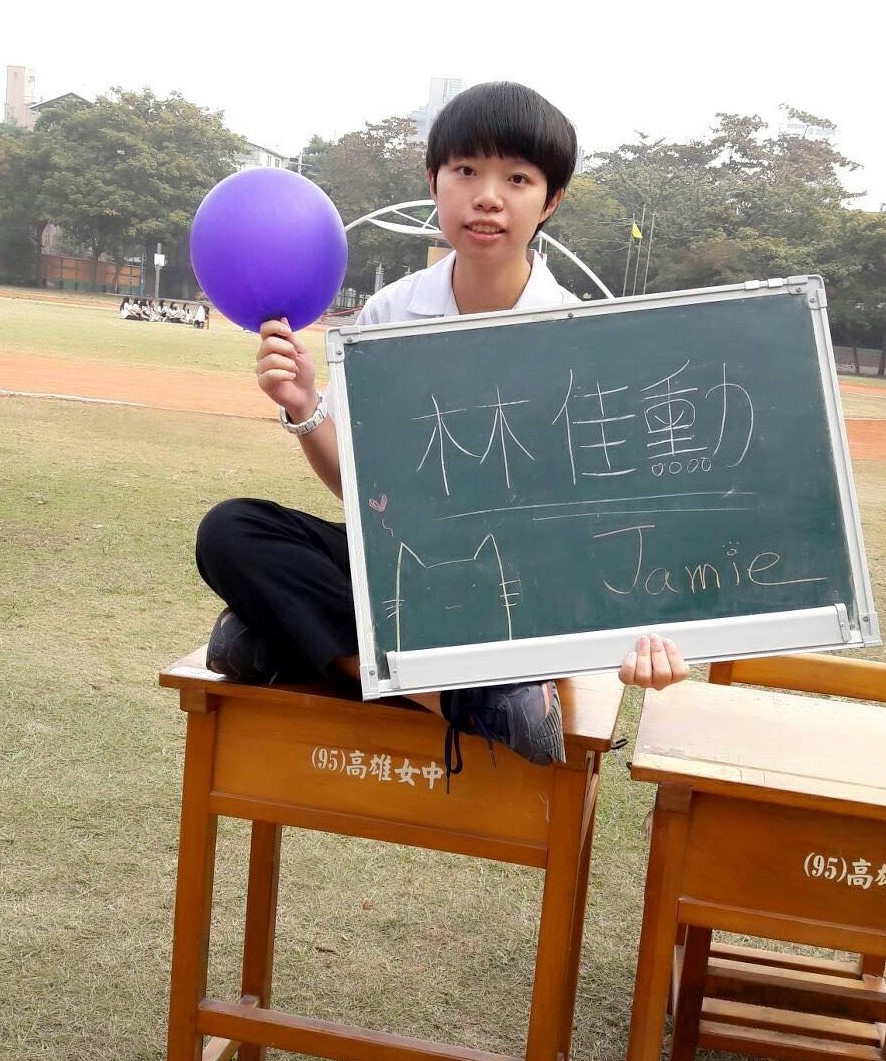 林佳勳
Jamie
(95)高雄女中
(95)高